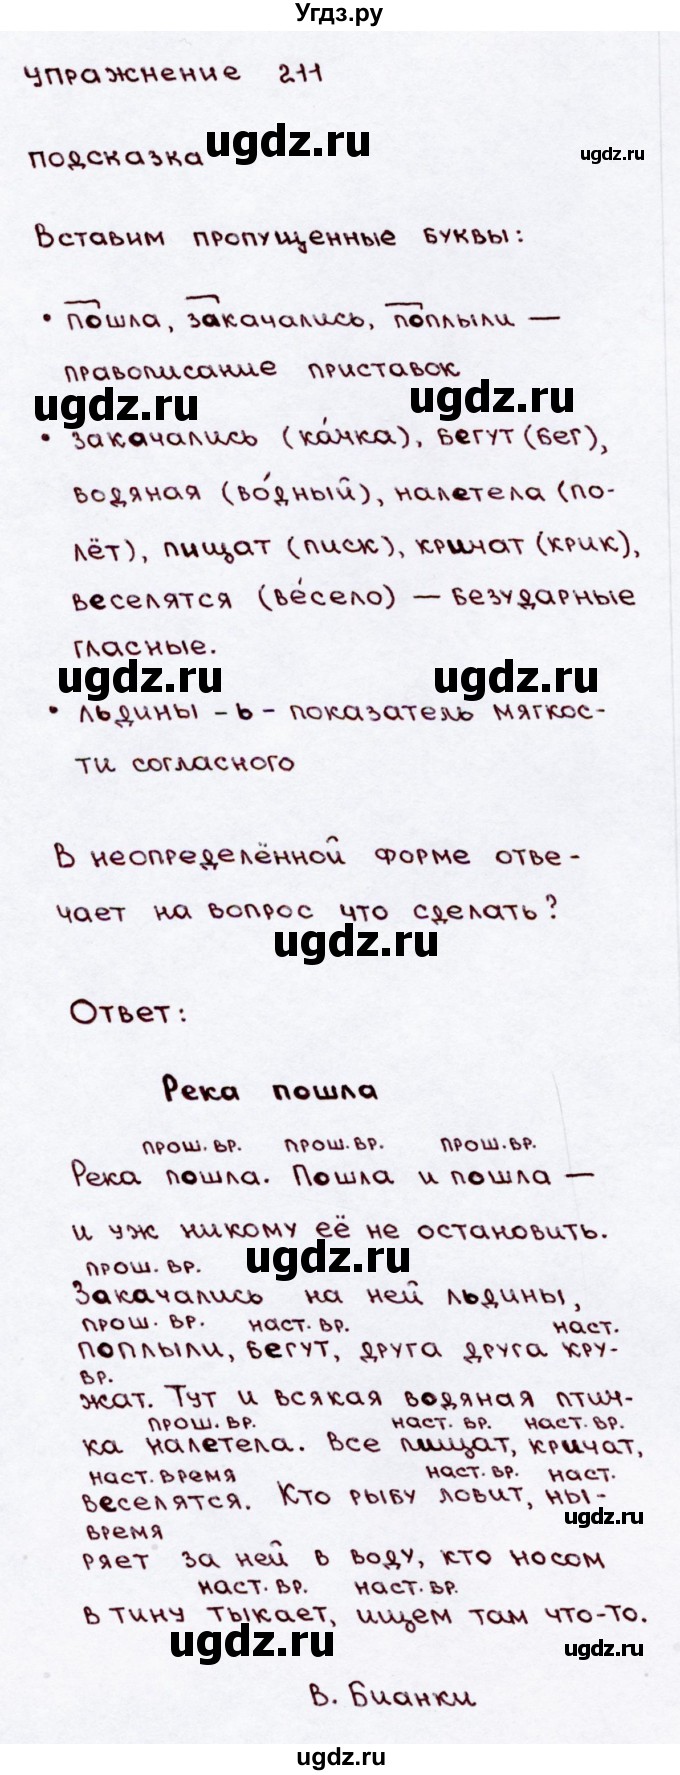 Угдз.ру
упражнение 211
ugdz.ru
ugdz.ru
подсказка
Вставим пропущенные буквы:
• пошла, закачались, поплыли —
правописание приставок
ugdz.ru
ugdz.ru
• закачались (ка́чка), бегут (бег),
водяная (во́дный), налетела (по-
лёт), пищат (писк), кричат (крик),
веселятся (ве́село) — безударные
гласные.
ugdz.ru
ugdz.ru
• льдины - ь - показатель мягкос-
ти согласного
В неопределённой форме отве-
чает на вопрос что сделать?
ugdz.ru
Ответ:
Река пошла
прош. вр. прош. вр. прош. вр.
Река пошла. Пошла и пошла —
и уж никому её не остановить.
ugdz.ru
прош. вр.
Закачались на ней льдины,
прош. вр. наст. вр. наст.
поплыли, бегут, друга друга кру-
вр.
жат. Тут и всякая водяная птич-
прош. вр. наст. вр. наст. вр.
ка налетела. Все пищат, кричат,
наст. время наст. вр. наст.
веселятся. Кто рыбу ловит, ны-
ugdz.ru
время
ряет за ней в воду, кто носом
наст. вр. наст. вр.
в тину тыкает, ищем там что-то.
ugdz.ru
ugdz.ru
В. Бианки
ugdz.ru